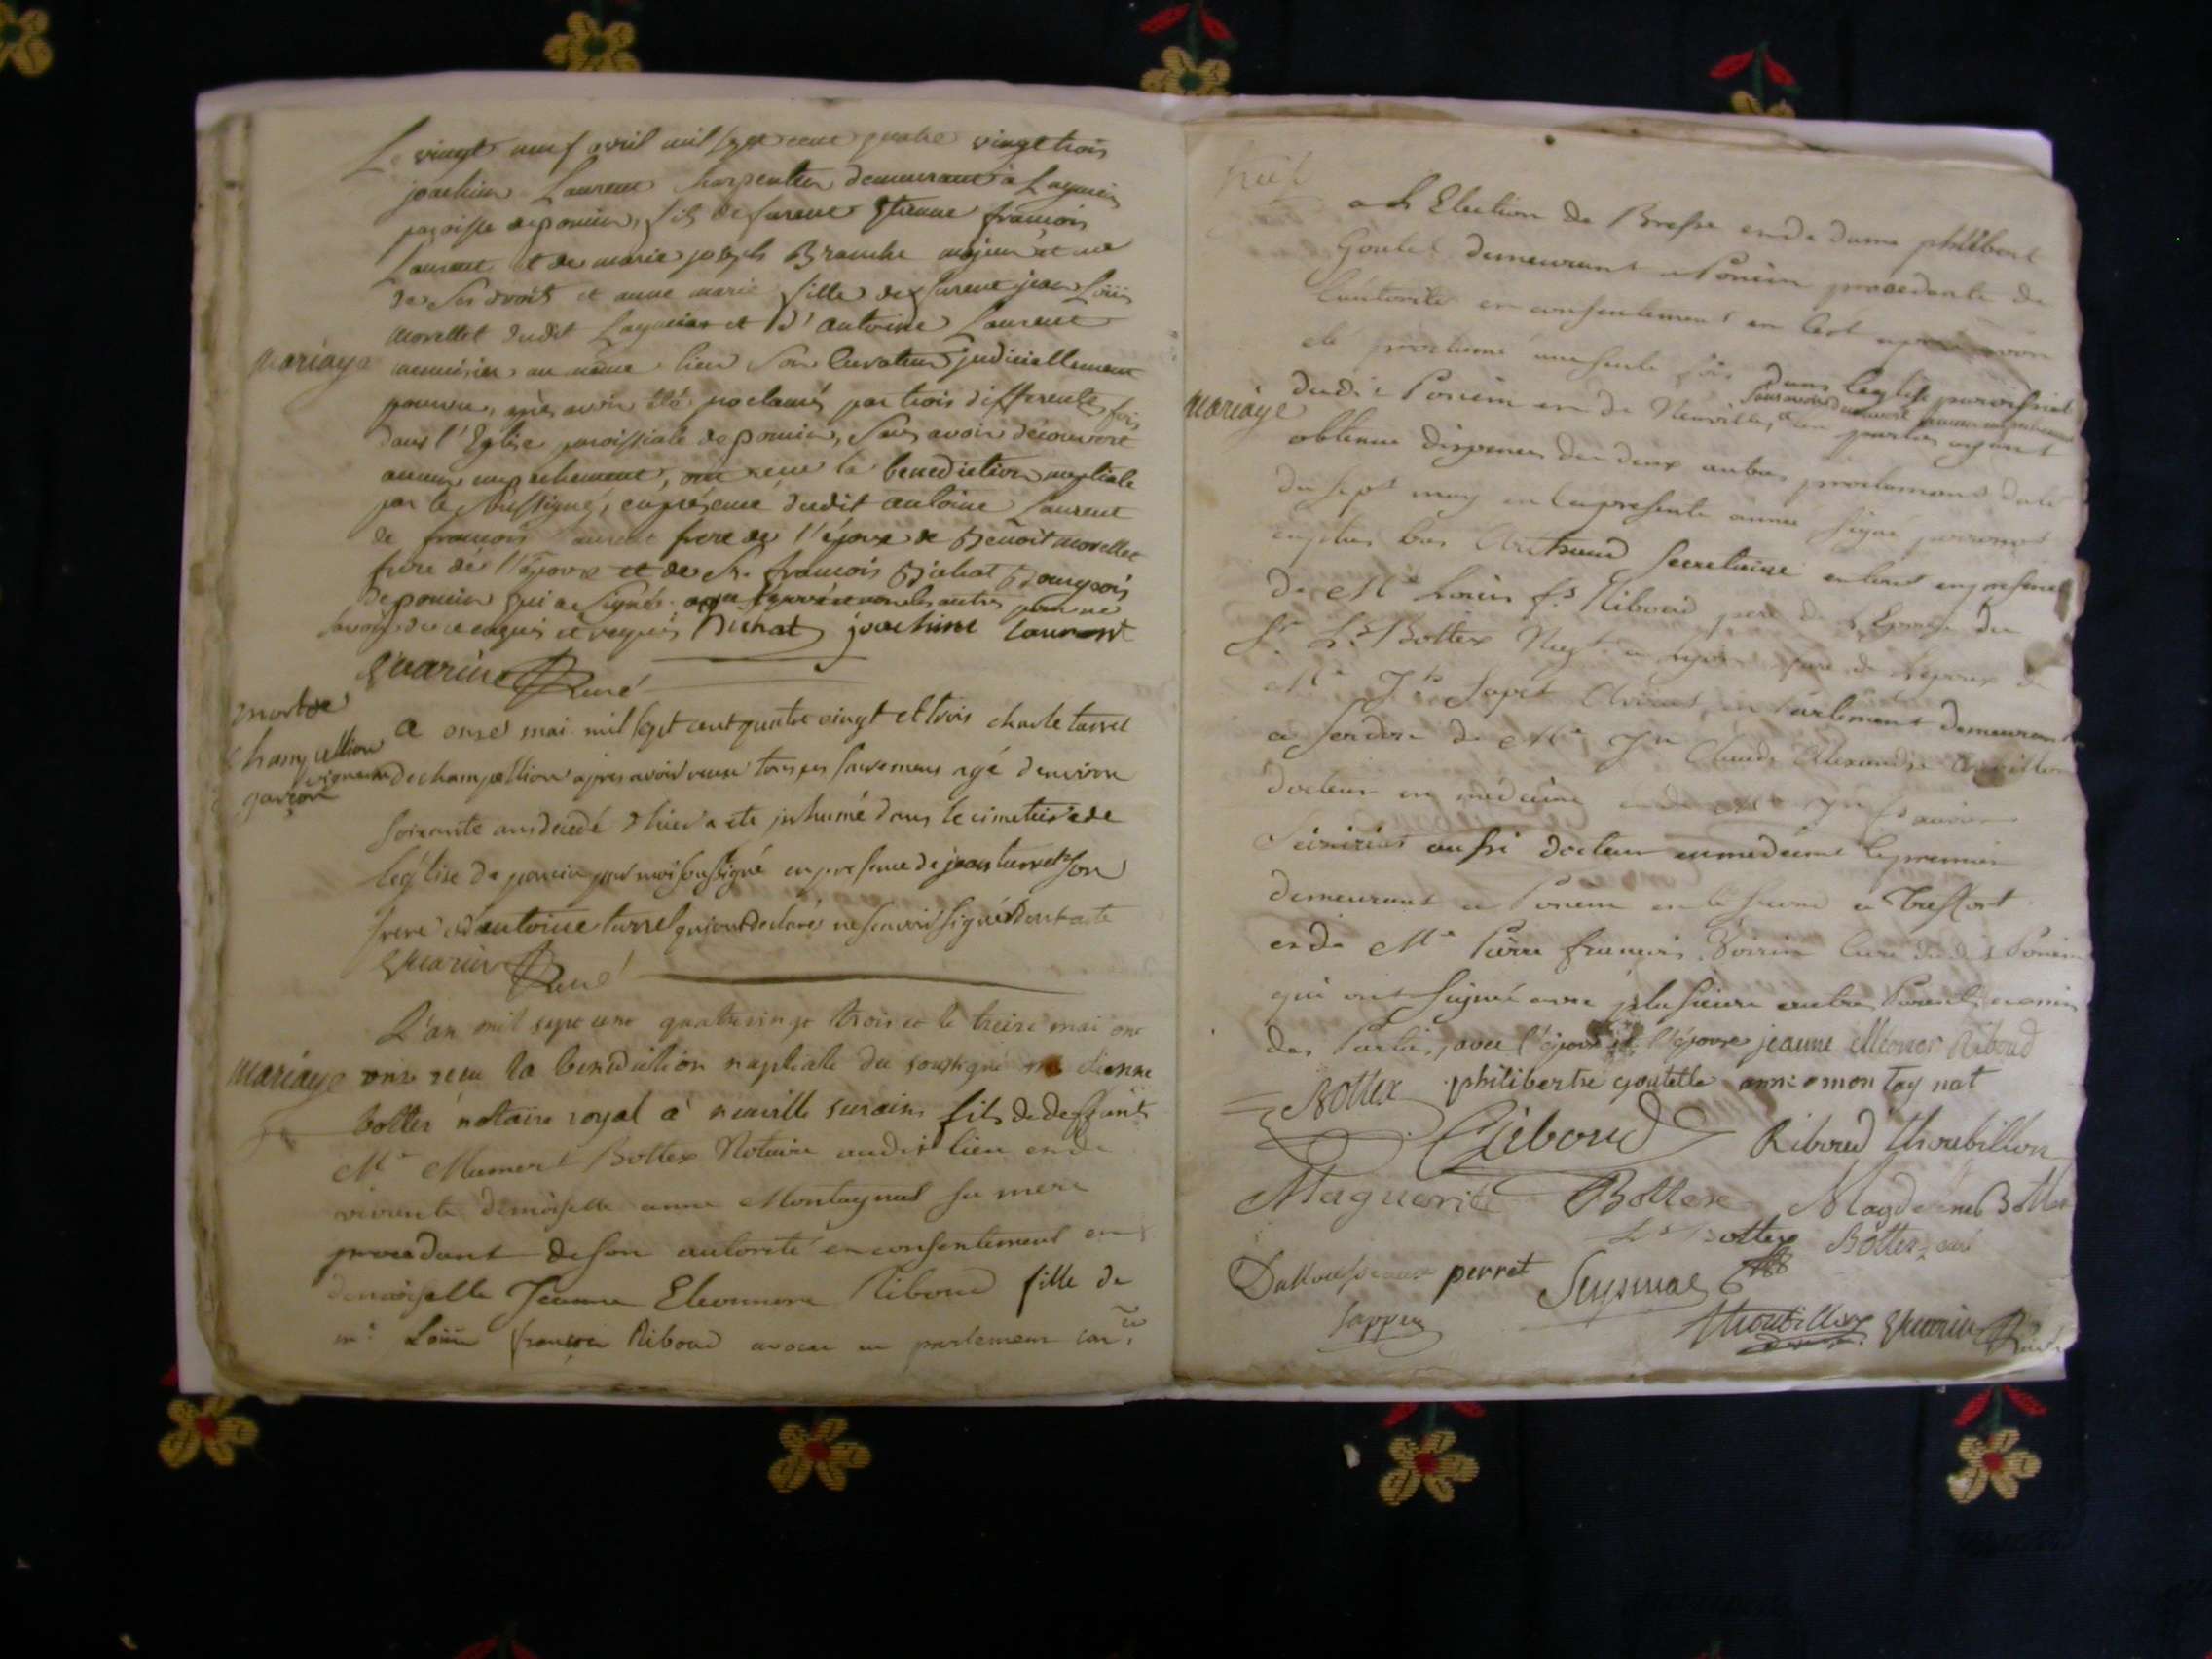 Le vingt neuf avril mil sept cent quatre vingt trois
joachim Laurent charpentier demeurant a
paroisse de poncin, fils de Etienne françois
Laurent et de marie joseph Branche majeur et me
de ses droits et anne marie fille de jean Loüis
Morellet dudit et d'antoine Laurent
mariage menuisier au même lieu son Curateur judiciellement
pourvu, après avoir été proclamés par trois differentes fois
dans l'Eglise paroissiale de poncin, sans avoir découvert
aucun empechement, ont reçu la benediction nuptiale
par le soussigné, en présence dudit antoine Laurent
de françois Laurent frere de l'époux de Benoit Morellet
frere de l'épouse et de Sr. françois Bichat Bourgeois
de poncin qui a signé les autres pour ne
savoir de ce enquis et requis Bichat joachim Laurent
Guarin Curé
mort de
Champellion
vigneron
garçon
a onze mai mil sept cent quatre vingt et trois charle turrel
de champellion apres avoir reçu tous ses sacremens agé d'environ
soixante ans decedé d'hier a ete inhumé dans le cimetiere de
leglise de poncin par moi soussigné en presence de jean turrel son
frere et d'antoine turrel qui ont declaré ne scavoir signer dont acte
Guarin Curé
L'an mil sept cent quatrevingt trois et le treize mai ont
mariage reçu la benediction nuptiale du soussigné me etienne
Bottex notaire royal a neuville surains fils de deffunt
Me Mamert Bottex Notaire audit lieu et de
vivante demoiselle anne Montagnat sa mere
procedant de son autorité et consentement et
demoiselle Jeanne Eleonnore Riboud fille de
me Loüis françois Riboud avocat en parlement
en Election de Bresse et de dame philiberte
Goutel demeurant a Poncin procedante de
lautorité et consentement
été proclamé une seule fois dans leglise paroissial
mariage dudit Poncin et de Neuville, sans avoir decouvert aucun empechement les parties ayant
obtenu dispense des deux autres proclamans daté
du sept may en la presente année signé
et plus bas secretaire et tout en presence
de Me Louis fs Riboud pere de l'Epouse du
Sr. Ls Bottex Negt a lyon frere de l'epoux de
Me Avocat en Parlement demeurant
a de Me Jn Claude Alexandre
docteur en médecine et de
aussi docteur en medecine le premier
demeurant a Poncin et le second a Treffort
et de Me Pierre françois curé dudit Poncin
qui ont signé avec plusieurs autres Parents et amis
des Parties, avec l'époux et l'épouse jeanne elléonor Riboud
Bottex philiberthe goutelle anne montagnat
Riboud Riboud thoubillon
Maguerite Bottex Magdeleine Bottex
Ls Bottex Bottex
perret
Guarin Curé